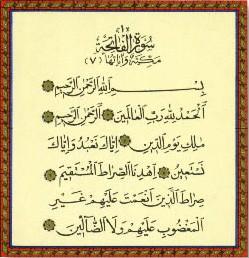 ١
سُورَةُ الْفَاتِحَةِ
مَكِّيَّة وَآيَاتُهَا (٧)
بِسْمِ اللَّهِ الرَّحْمَٰنِ الرَّحِيمِ
الْحَمْدُ لِلَّهِ رَبِّ الْعَالَمِينَ الرَّحْمَٰنِ الرَّحِيمِ
مَالِكِ يَوْمِ الدِّينِ إِيَّاكَ نَعْبُدُ وَإِيَّاكَ
نَسْتَعِينُ اهْدِنَا الصِّرَاطَ الْمُسْتَقِيمَ
صِرَاطَ الَّذِينَ أَنْعَمْتَ عَلَيْهِمْ غَيْرِ
الْمَغْضُوبِ عَلَيْهِمْ وَلَا الضَّالِّينَ